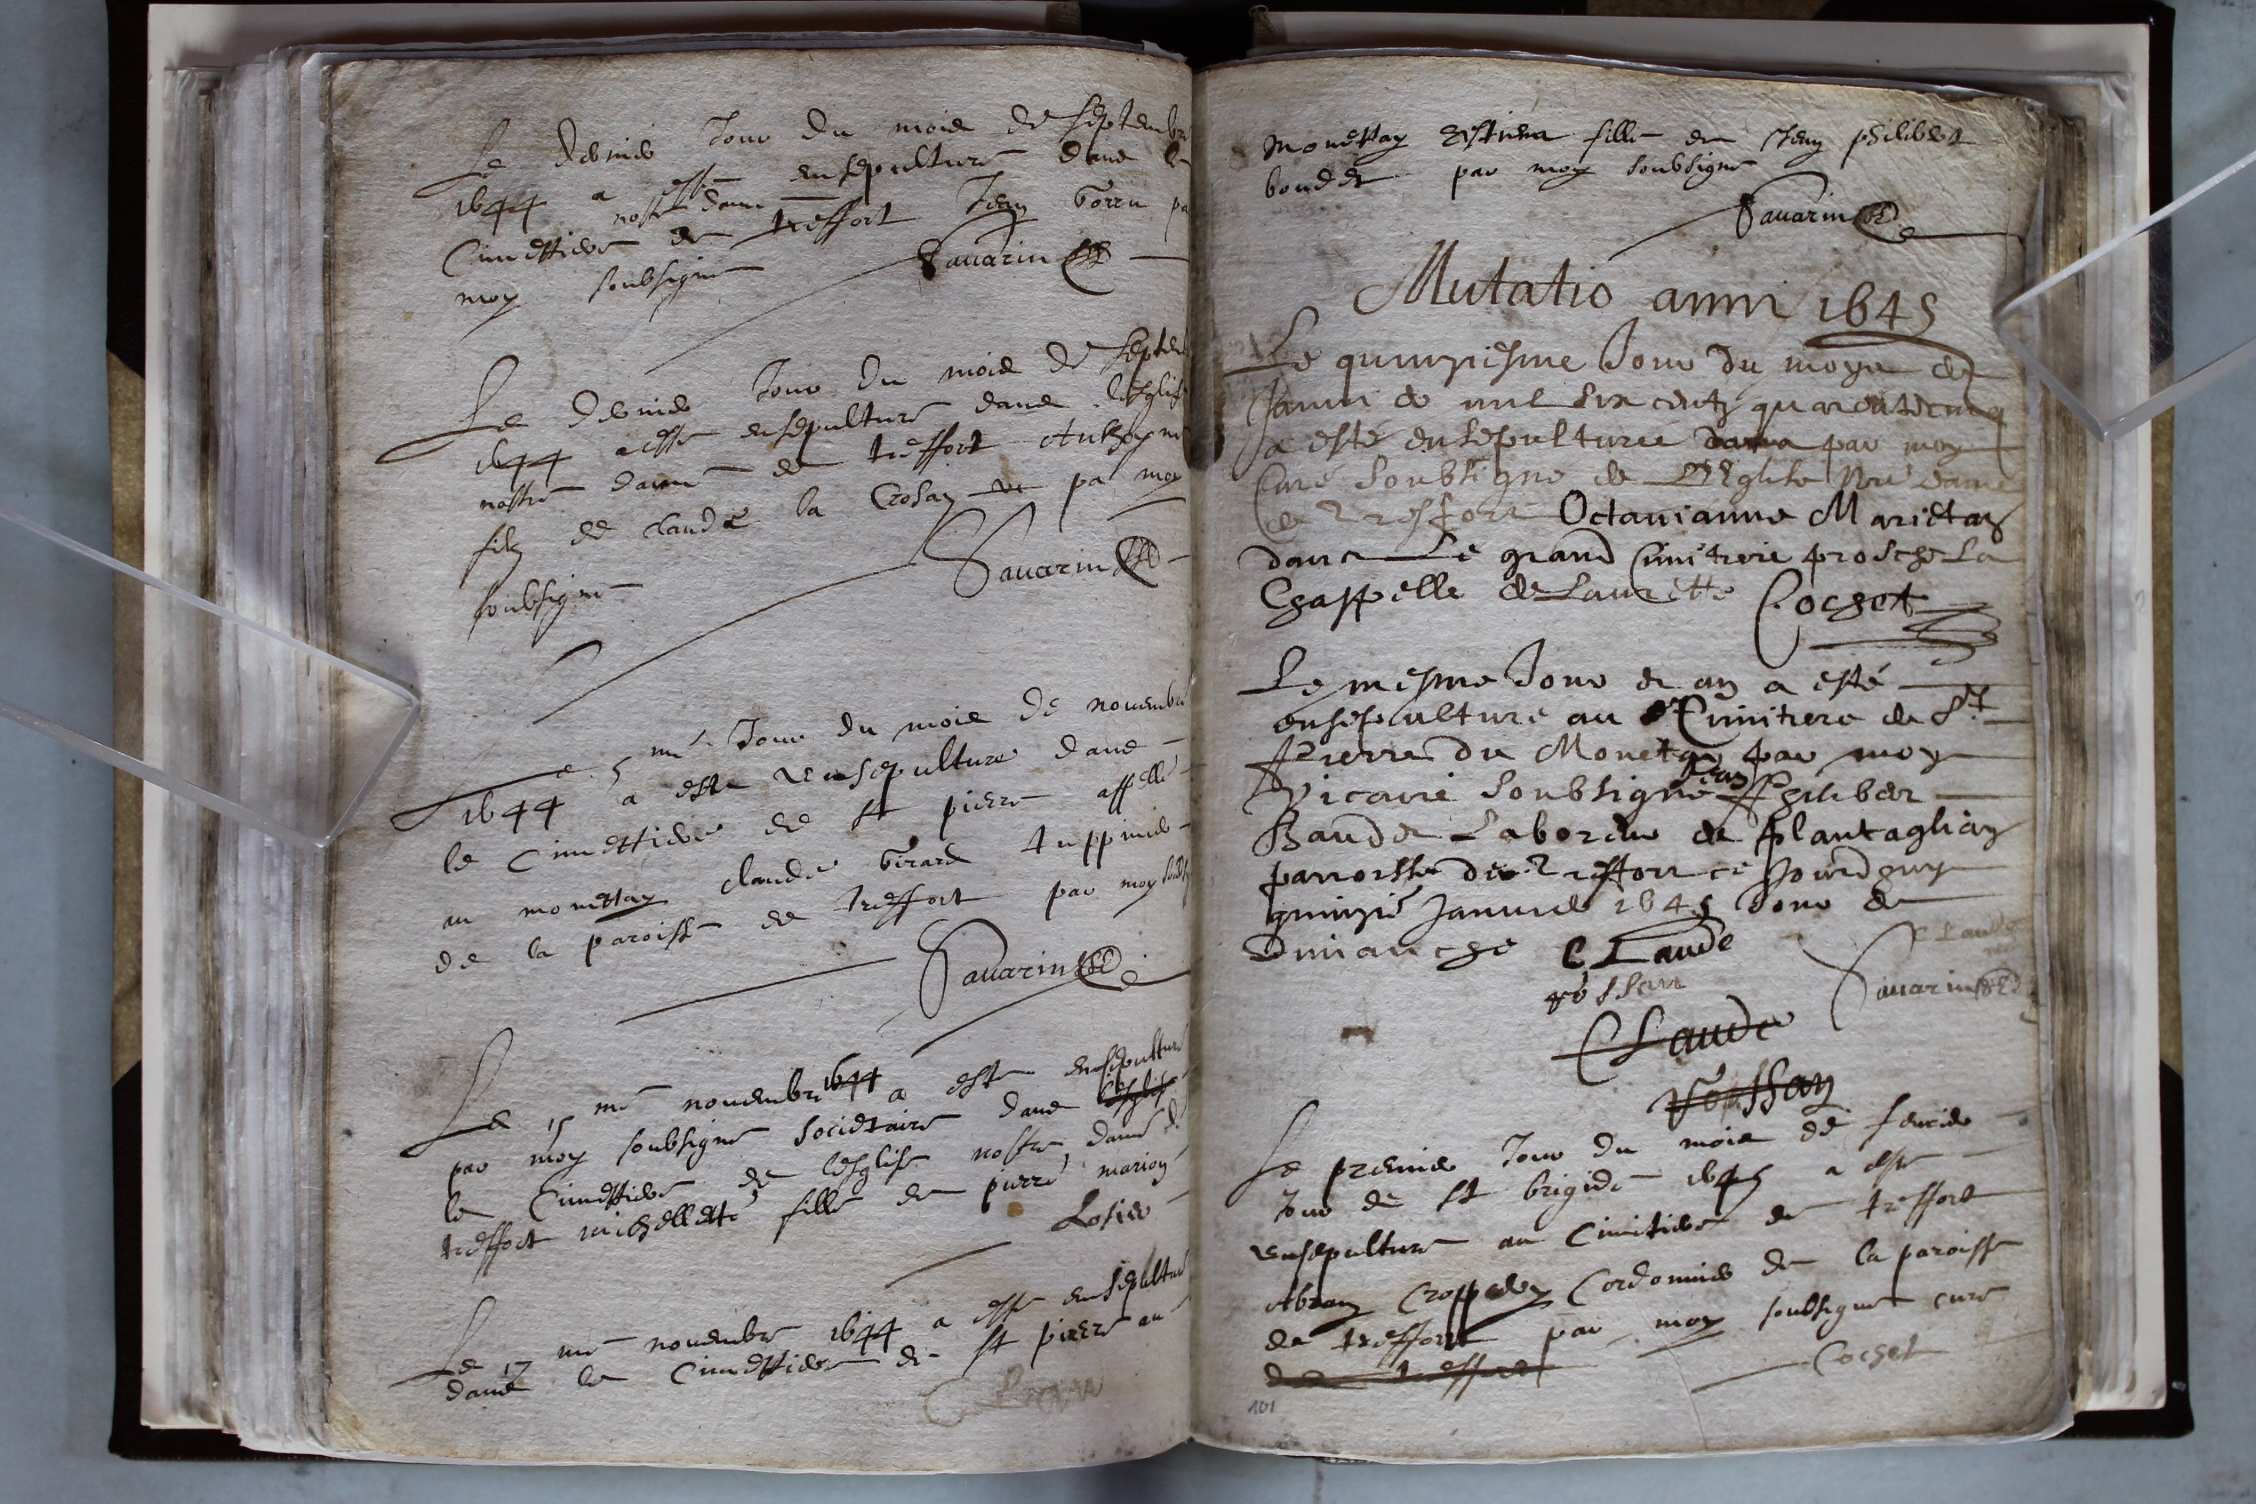 Le dernier Jour du mois de septembre
1644 a esté ensepulturé dans le
Cimettiere de nostre dame treffort Jean borru pa
moy soubsigné Savarin
Le dernier Jour du mois de septem
1644 a esté ensepulturé dans l'eglis
nostre dame de treffort Anthoyne
filz de claude la Crosaz pa moy
soubsigné Savarin
Le 5 me Jour du mois de novembre
1644 a esté ensepulturé dans
le Cimettiere de st pierre appellé
au monettay claude Girard tuppinier
de la paroisse de treffort par moy soubs
Savarin
Le 15 me novembre 1644 a esté ensepulturé
par moy soubsigné societaire dans l'eglise
le Cimettiere de l'esglise nostre dame de
treffort michellette fille de pierre marion
Losier
Le 17 me novembre 1644 a esté ensepultur
dans le Cimettiere de st pierre au
monettay Estiena fille de Jean philibert
boudet par moy soubsigné
Savarin
Mutatio anni 1645
Le quinziesme Jour du moys de
Janvier de mil six centz quarente cinq
a esté ensepulturée dans par moy
Curé soubsigné de L'Eglise Nre dame
de Treffort Octavianne Marietaz
dans Le grand Cimitiere prosche La
Chappelle de Laurette Cochet
Le mesme Jour et an a esté
ensepulturé au Cimitiere de St
Pierre du Monetay par moy
Vicaire soubsigné Jean Philiber
Baudet Laboreur de plantagliay
parroisse de Treffort ce Jourdhuy
quinzie Janvier 1645 Jour de
Dimanche C Laude
Savarin
CLaude
Vossan
Le premier Jour du mois de fevrier
Jour de st brigide 1645 a esté
ensepulturé au Cimitiere de treffort
Abram Cordonnier de la paroisse
de treffort par moy soubsigné curé
de treffort Cochet
101